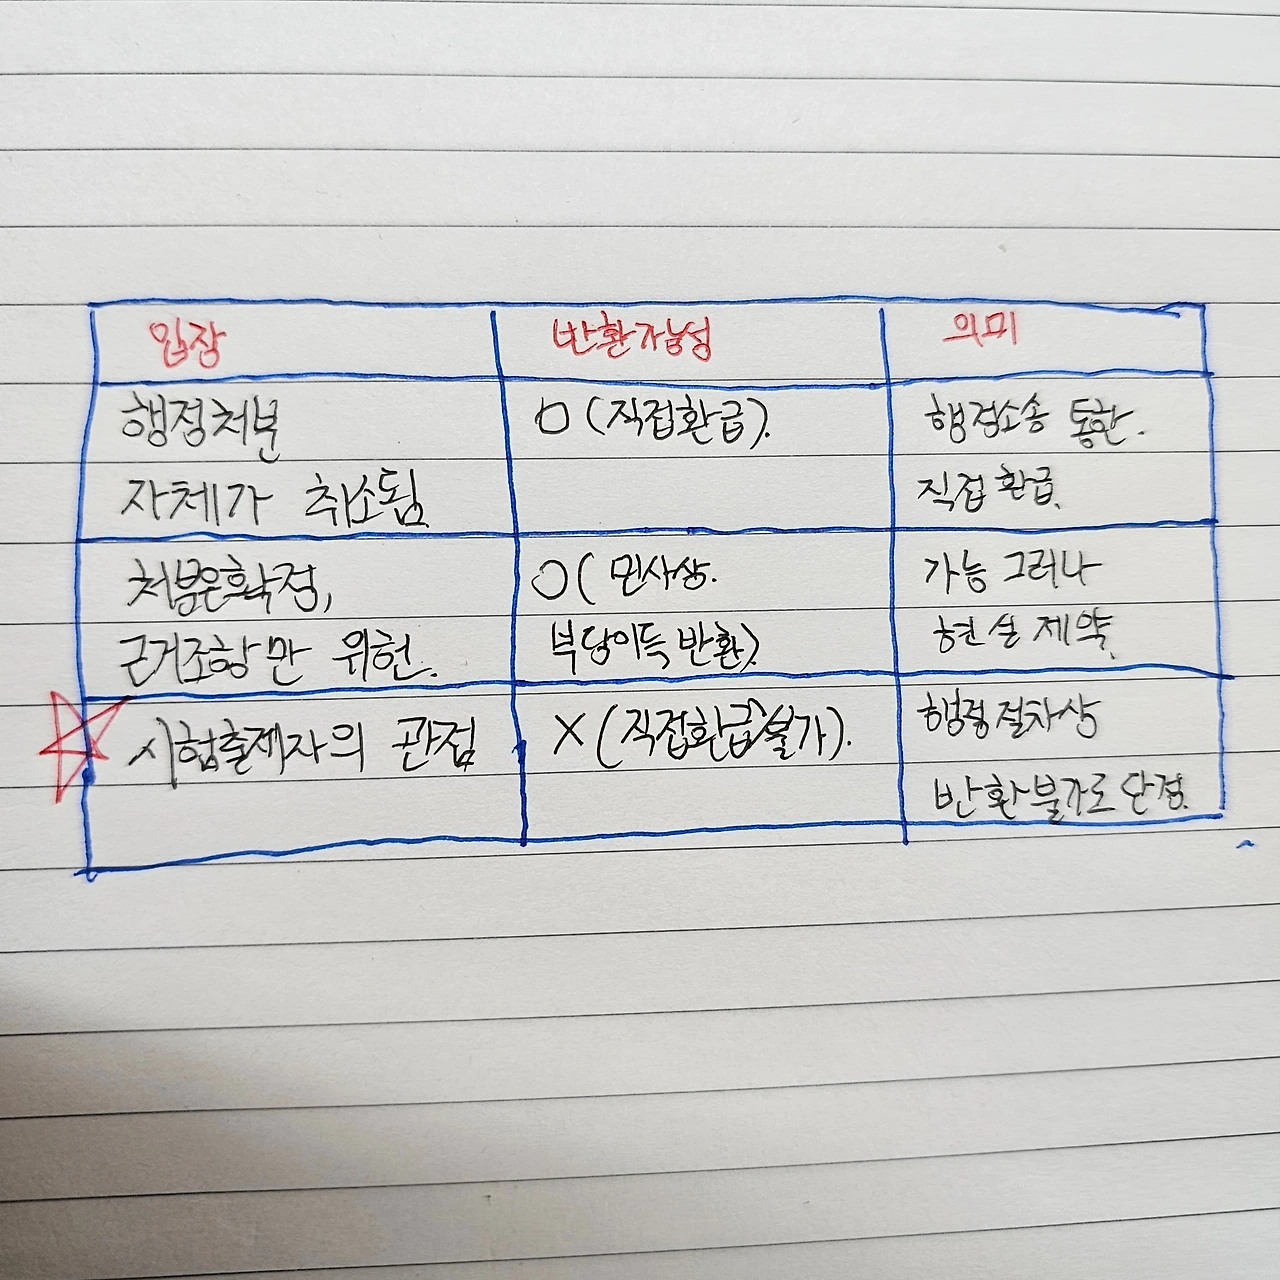 입장 반환가능성 의미
행정처분 O (직접환급). 행정소송 통한.
자체가 취소됨. 직접환급.
처분은확정, O ( 민사상. 가능 그러나
근거조항만 위헌. 부당이득 반환). 현실 제약.
시험출제자의 관점 X (직접환급불가). 행정절차상
반환불가로 단정.